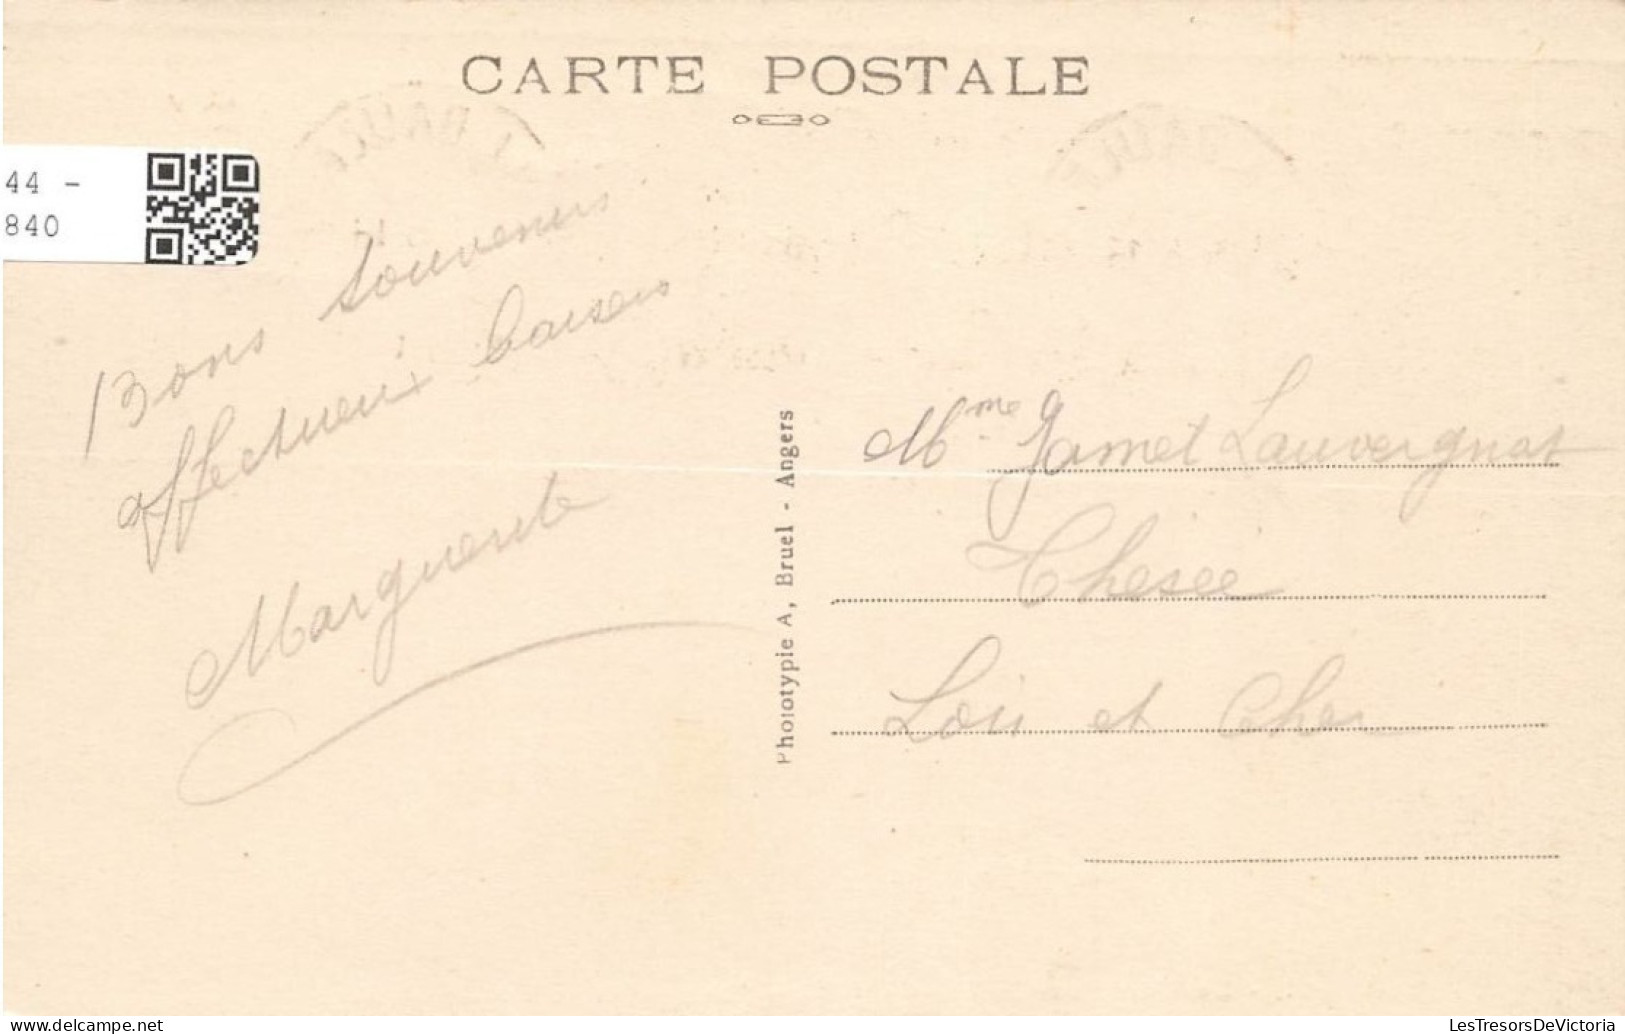 CARTE POSTALE
44 -
840
Bons souvenirs
affectueux baisers
Marguerite
Phototypie A, Bruel - Angers
Mme Jamet Lauvergnat
Thésée
Loir et Cher
delcampe.net
LesTresorsDeVictoria